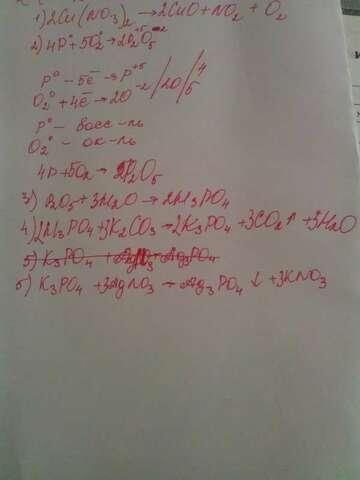 1) 2Cu(NO₃)₂ → 2CuO + NO₂ + O₂
2) 4P⁰ + 5O₂⁰ → 2P₂⁺⁵O₅⁻²
P⁰ - 5ē → P⁺⁵ | | 4
O₂⁰ + 4ē → 2O⁻² | 20 | 5
P⁰ - восс-ль
O₂⁰ - ок-ль
4P + 5O₂ → 2P₂O₅
3) P₂O₅ + 3H₂O → 2H₃PO₄
4) 2H₃PO₄ + 3K₂CO₃ → 2K₃PO₄ + 3CO₂↑ + 3H₂O
5) K₃PO₄ + AgNO₃ → Ag₃PO₄
5) K₃PO₄ + 3AgNO₃ → Ag₃PO₄↓ + 3KNO₃